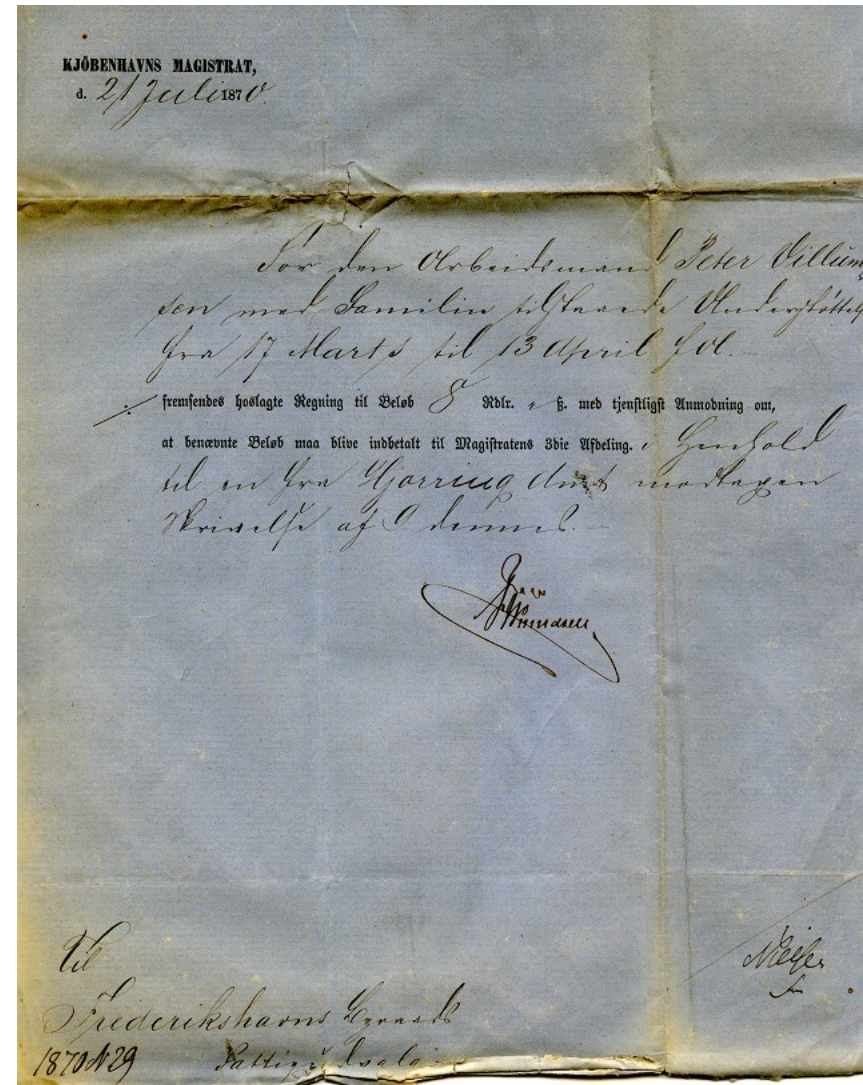 KJÖBENHAVNS MAGISTRAT,
d. 21 Juli 1870.
For den Arbeidsmand Peter Villum-
sen med Familie tilstaaede Understøttelse
fra 17 Marts til 13 April d. A.
./. fremsendes hoslagte Regning til Beløb 8 Rdlr. " ß. med tjenstligst Anmodning om,
at benævnte Beløb maa blive indbetalt til Magistratens 3die Afdeling. i Henhold
til en fra Hjørring Amt modtagen
Skrivelse af 9 dennes.
Til
Frederikshavns Byraads
1870 N 29 Fattigudvalg